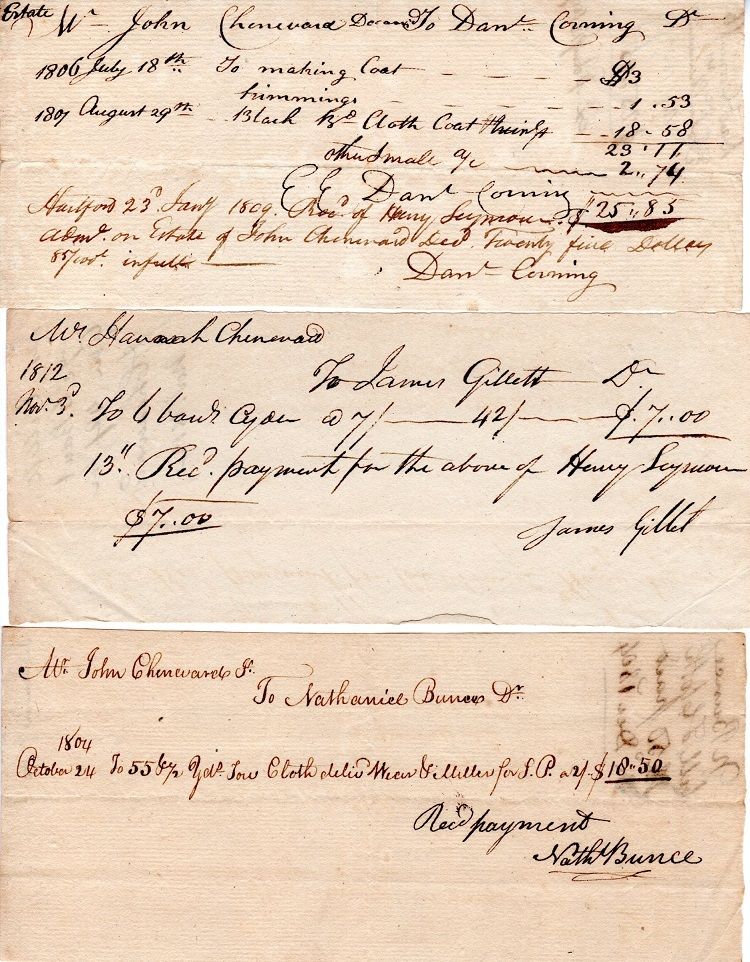 Estate
Mr John Chenevard Decd To Danl Corning Dr
1806 July 18th To making Coat $3
trimmings 1..53
1807 August 29th Black Bd Cloth Coat 18-58
23.11
other small a/c 2..74
E E Danl Corning $25..85
Hartford 23d Jany 1809. Recd of Henry Seymour
admr. on Estate of John Chenevard Decd. Twenty five Dollars
85/100 in full
Danl Corning
Mrs Hannah Chenevard
To James Gillett Dr
1812
Novr 3d. To 6 barrls Cyder a 7/ 42/ $7..00
13th Recd. payment for the above of Henry Seymour
$7..00
James Gillet
Mr. John Chenevard Jr.
To Nathaniel Bunce Dr.
1804
October 24 To 55 1/2 Yds. Tow Cloth delivd for S.P. a 2/ $18..50
Recd payment
Nathl Bunce